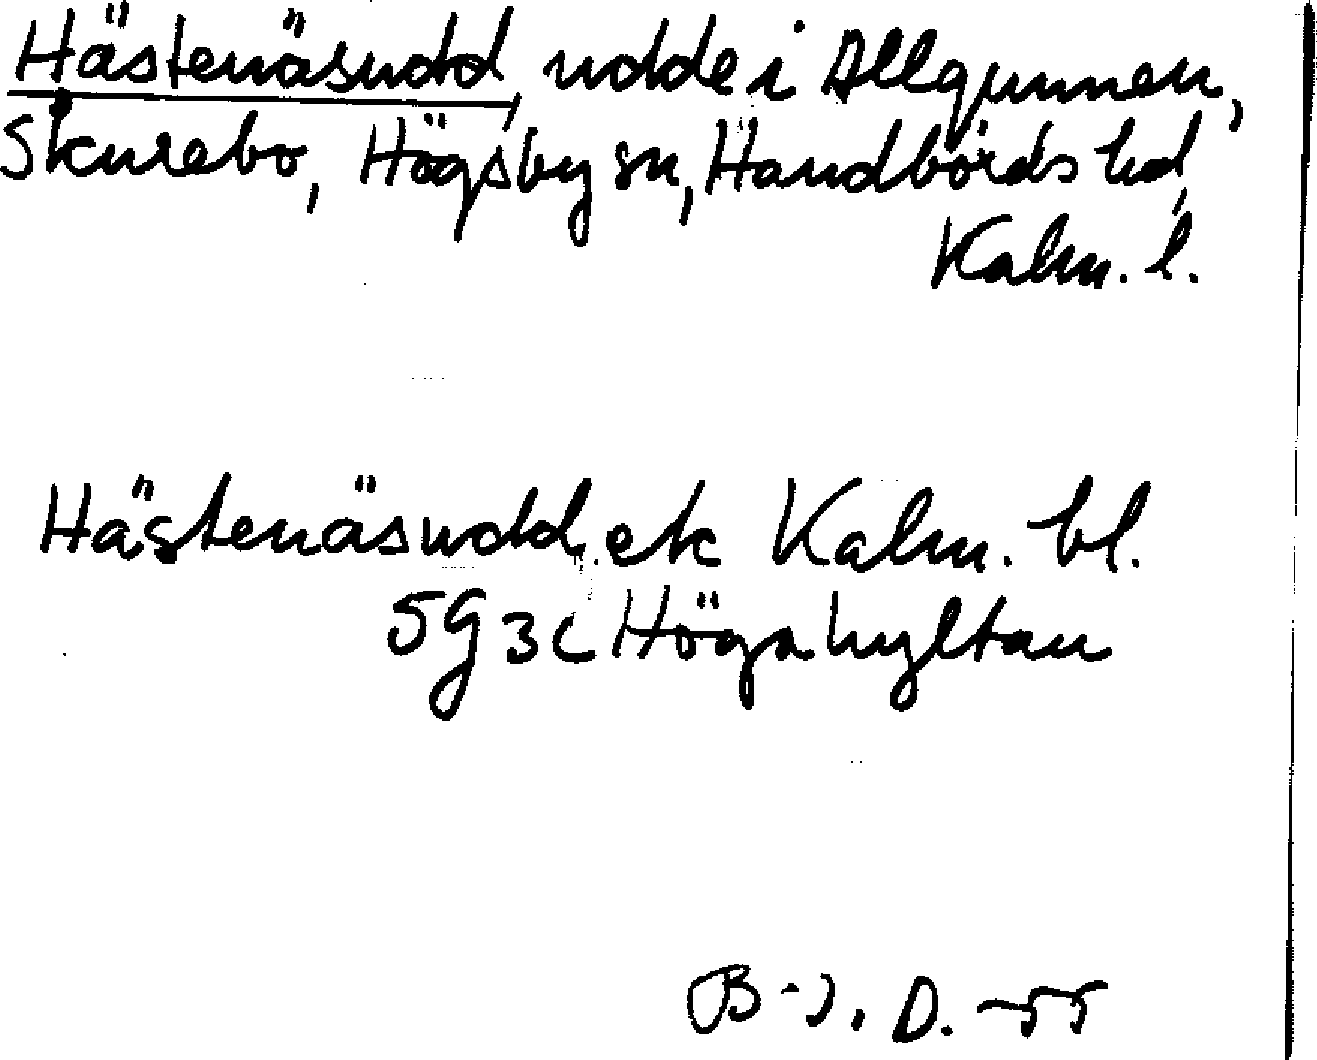 Hästenäsudd, udde i Allgunnen,
Skurebo, Högsby sn, Handbörds hd,
Kalm. l.
Hästenäsudd. ek Kalm. bl.
5G3c Högahyltan
B-J. D. -55